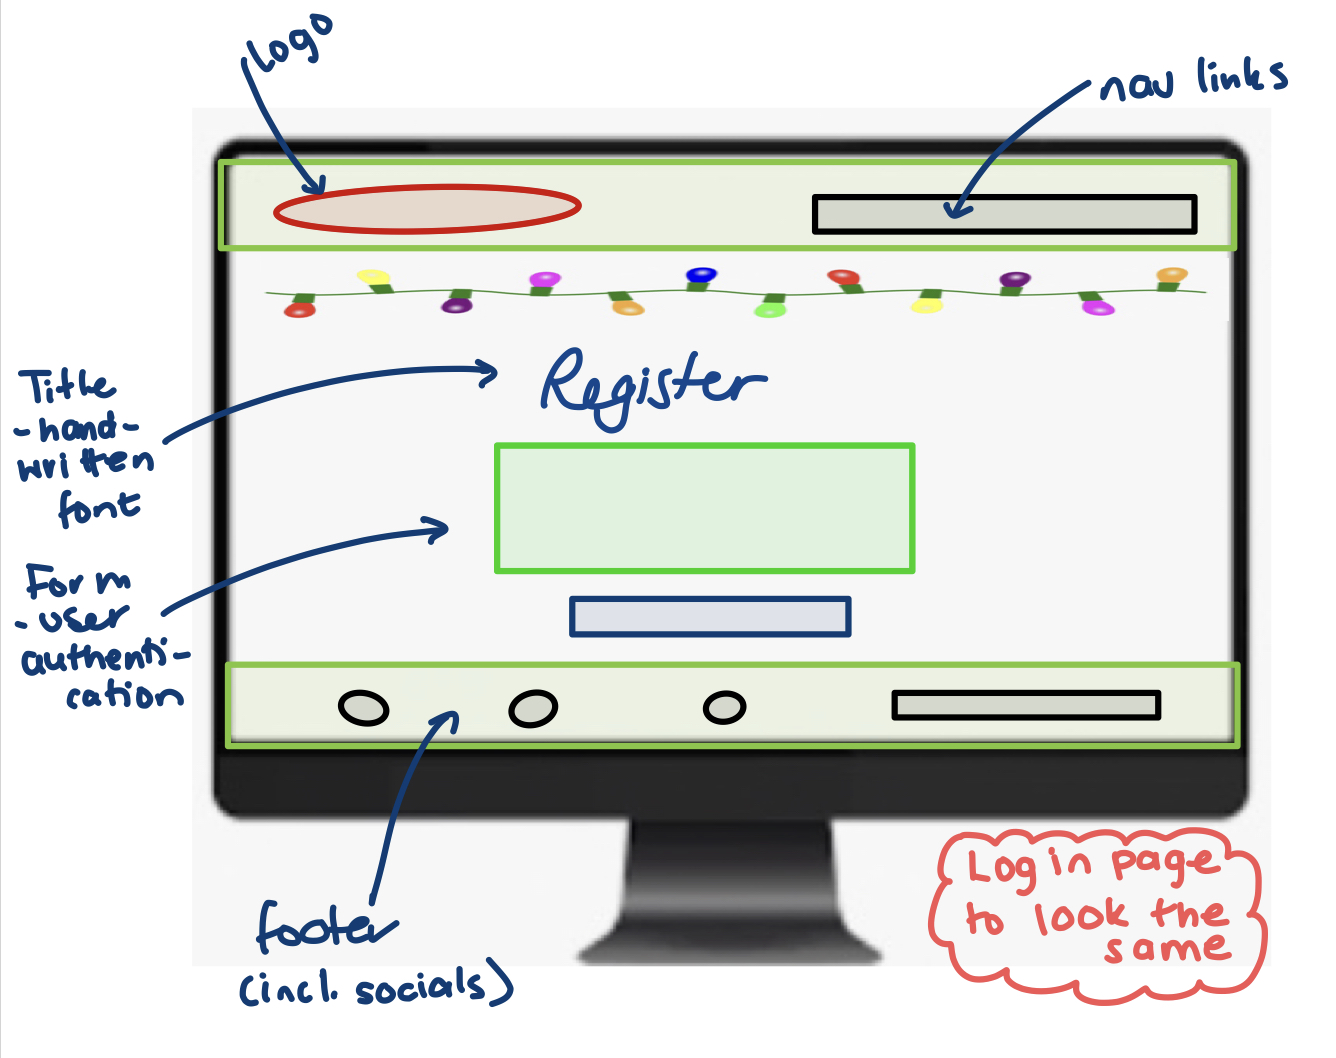 Logo
nav links
Register
Title
- hand-
written
font
Form
- user
authenti-
cation
footer
(incl. socials)
Log in page
to look the
same